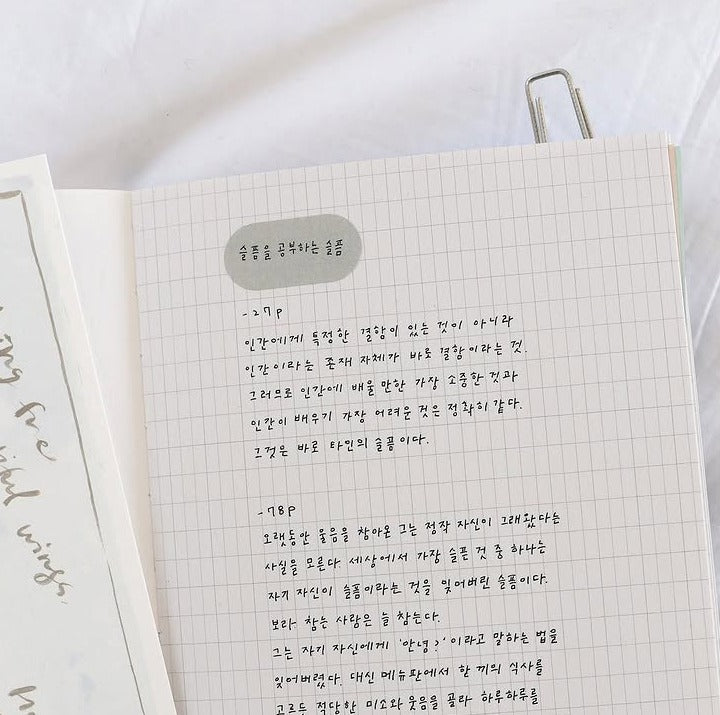 슬픔을 공부하는 슬픔
-27p
인간에게 특정한 결함이 있는 것이 아니라
인간이라는 존재 자체가 바로 결함이라는 것.
그러므로 인간에 배울만한 가장 소중한 것과
인간이 배우기 가장 어려운 것은 정확히 같다.
그것은 바로 타인의 슬픔이다.
-78p
오랫동안 울음을 참아온 그는 정작 자신이 그래왔다는
사실을 모른다 세상에서 가장 슬픈 것 중 하나는
자기 자신이 슬픔이라는 것을 잊어버린 슬픔이다.
보라. 참는 사람은 늘 참는다.
그는 자기 자신에게 '안녕?' 이라고 말하는 법을
잊어버렸다. 대신 메뉴판에서 한 끼의 식사를
고르듯 적당한 미소와 웃음을 골라 하루하루를
wings,